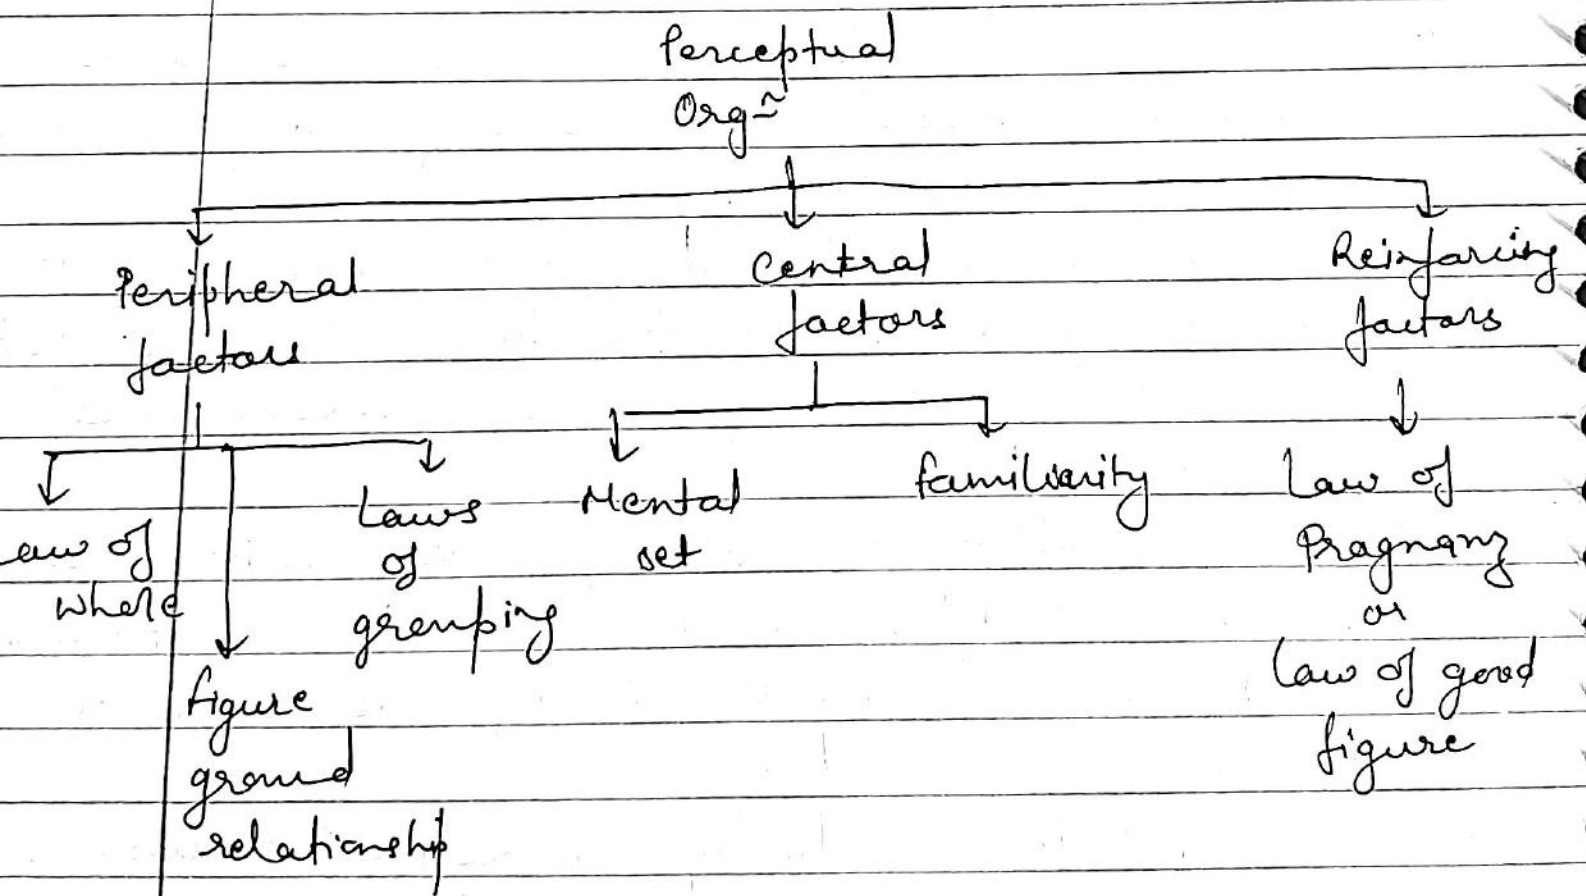 Perceptual
Orgn
Peripheral
factors
Central
factors
Reinforcing
factors
Law of
whole
figure
ground
relationship
Laws
of
grouping
Mental
set
familiarity
Law of
Pragnanz
or
Law of good
figure